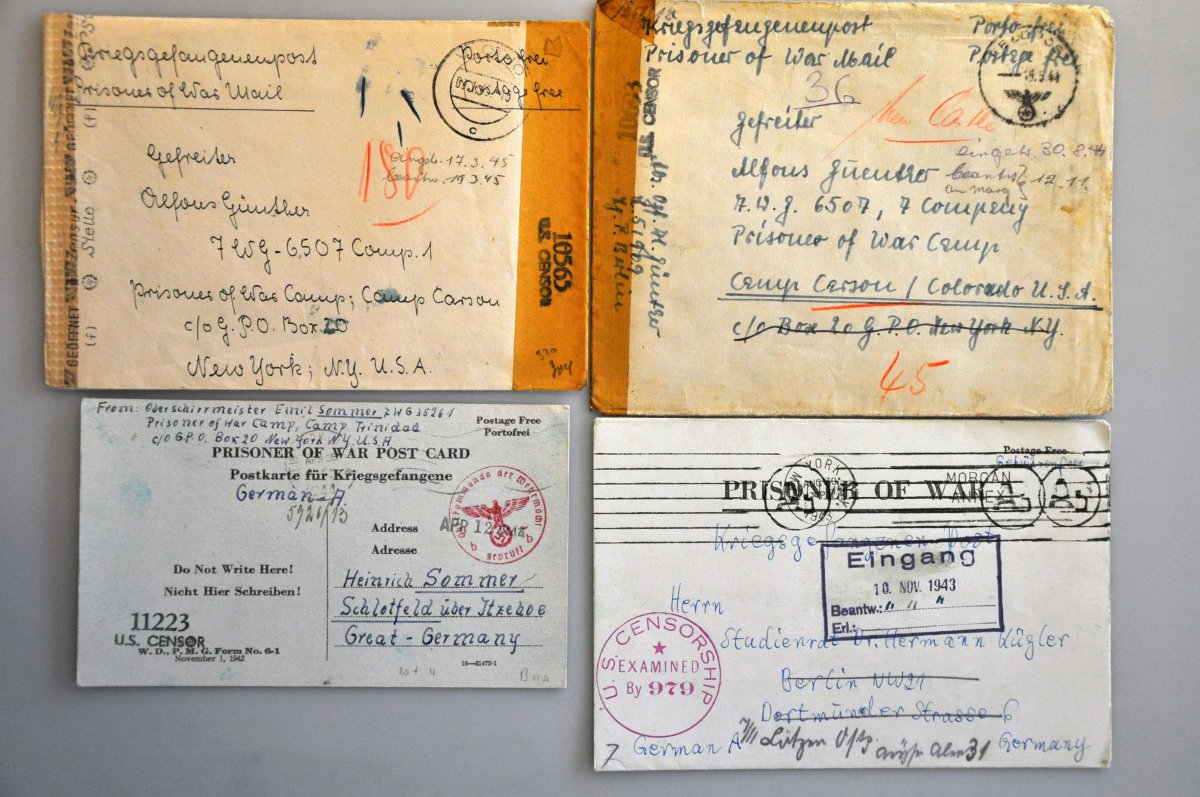 Kriegsgefangenenpost
Prisoner of War Mail
Portofrei
Postage free
c
180
Gefreiter
eingetr. 17.3.45
beantw. 19.3.45
Alfons Günther
7WG-6507 Comp. 1
Prisoner of War Camp; Camp Carson
c/o G. P.O. Box 20
New York; N.Y. U.S.A.
GEÖFFNET
Stelle
10565
U.S. CENSOR
Kriegsgefangenenpost
Prisoner of War Mail
Porto frei
Postage free
36
Gefreiter
eingetr. 30.8.44
Alfons Guenther
beantw. 12.11.
7.W.G. 6507, 7 Company
Prisoner of War Camp
Camp Carson / Colorado U.S.A.
c/o Box 20 G.P.O. New York N.Y.
45
U.S. CENSOR
From: Oberschirrmeister Emil Sommer 7WG35261
Prisoner of War Camp, Camp Trinidad
c/o G.P.O. Box 20 New York N.Y. U.S.A
Postage Free
Portofrei
PRISONER OF WAR POST CARD
Postkarte für Kriegsgefangene
German-A.
5926/13
Oberkommando der Wehrmacht
geprüft
b b
APR 12 1944
Address
Adresse
Do Not Write Here!
Nicht Hier Schreiben!
Heinrich Sommer
Schlotfeld über Itzehoe
Great-Germany
11223
U.S. CENSOR
W. D., P. M. G. Form No. 6-1
November 1, 1942
16—31472-1
20 + 4
B 11A
Postage Free
Gebührenfrei
PRISONER OF WAR
NEW YORK
1943
MORGAN
ANNEX
Kriegsgefangenen Post
Eingang
10. NOV. 1943
Beantw.: " " "
Erl.:
Herrn
Studienrat Dr. Hermann Kügler
Berlin NW21
Dortmunder Strasse 6
German A
Lötzen
31
Germany
U.S. CENSORSHIP
EXAMINED
By 979